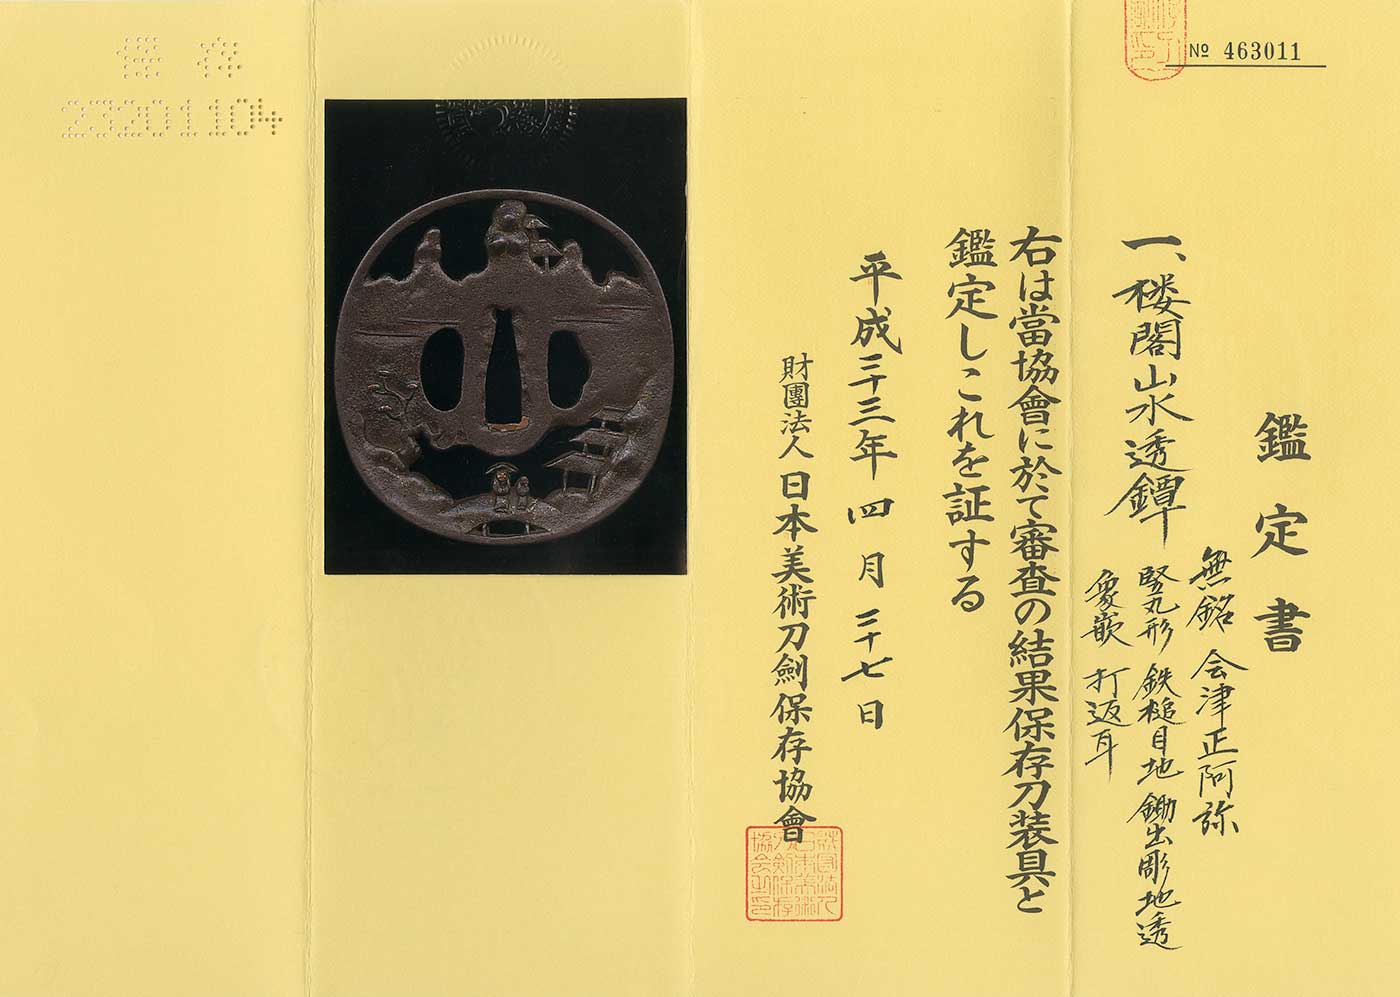 № 463011
鑑定書
一、楼閣山水透鐔
無銘 会津正阿弥
竪丸形 鉄槌目地 鋤出彫地透
象嵌 打返耳
右は當協會に於て審査の結果保存刀装具と
鑑定しこれを証する
平成二十三年四月二十七日
財團法人日本美術刀劍保存協會
保存
23201104